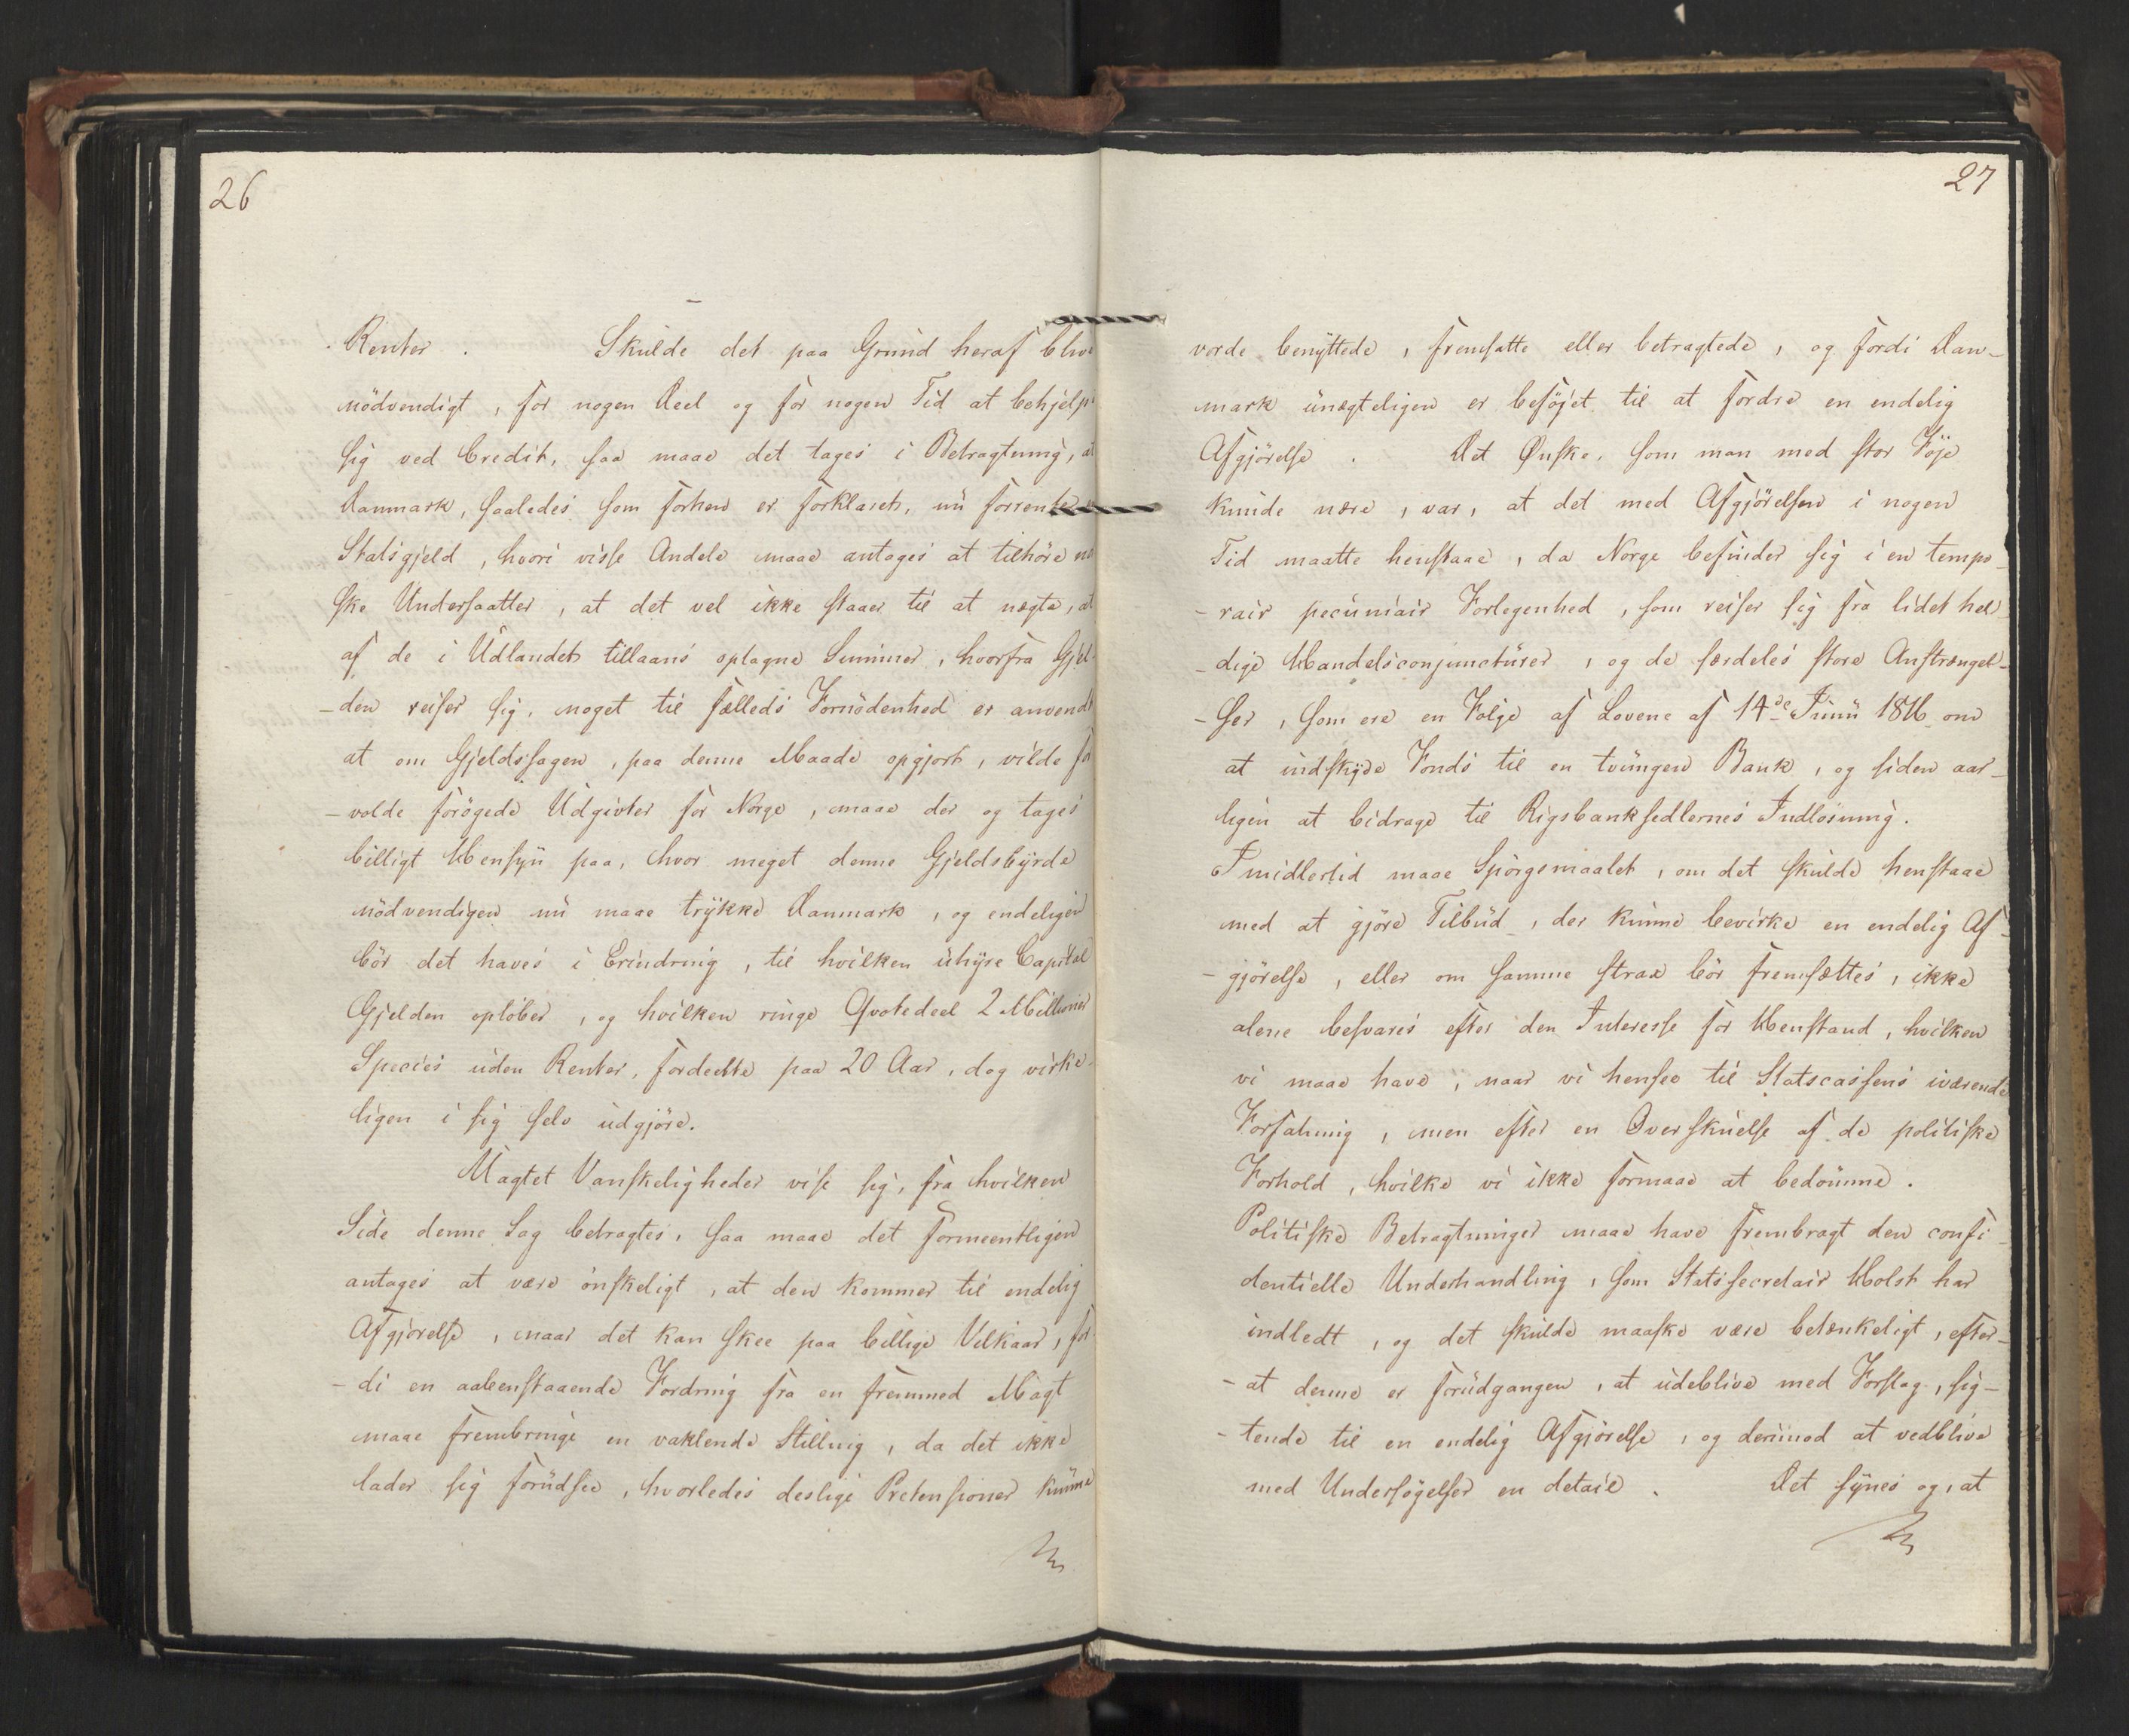 26
Renter. Skulde det paa Grund heraf blive
nödvendigt, for nogen Deel og for nogen Tid at behjelpe
sig ved Credit, saa maae det tages i Betragtning, at
Danmark, saaledes som forhen er forklaret, nu forrenter en
Statsgjeld, hvori visse Andele maae antages at tilhöre no
ske Undersaatter, at det vel ikke staaer til at nægte, at
af de i Udlandet tillaans optagne Summer, hvorfra Gjel-
-den reiser sig, noget til fælleds Fornödenhed er anvendt
at om Gjeldssagen, paa denne Maade opgjort, vilde for
-volde forögede Udgivter for Norge, maae der og tages
billigt Hensyn paa, hvor meget denne Gjeldsbyrde
nödvendigen nu maae trykke Danmark, og endeligen
bör det haves i Erindring, til hvilken uhyre Capital
Gjelden oplöber, og hvilken ringe Qvotedeel 2 Millioner
Species uden Renter, fordeelte paa 20 Aar, dog virke-
ligen i sig selv udgjöre.
Uagtet Vanskeligheder vise sig, fra hvilken
Side denne Sag betragtes, saa maae det formeentligen
antages at være önskeligt, at den kommer til endelig
Afgjörelse, naar det kan skee paa billige Vilkaar, for
-di en aabenstaaende Fordring fra en fremmed Magt
maae frembringe en vaklende Stilling, da det ikke
lader sig forudsee, hvorledes deslige Pretensioner kunne
27
vorde benyttede, fremsatte eller betragtede, og fordi Dan-
mark unægteligen er beföjet til at fordre en endelig
Afgjörelse. Det Ønske, som man med stor Föje
kunde nære, var, at det med Afgjörelsen i nogen
Tid maatte henstaae, da Norge befinder sig i en tempo-
-rair pecuniair Forlegenhed, som reiser sig fra lidet hel-
-dige Handelsconjuncturer, og de særdeles store Anstrængel-
-ser, som ere en Følge af Lovene af 14de Junii 1816 om
at indskyde Fonds til en tvungen Bank, og siden aar-
ligen at bidrage til Rigsbanksedlernes Indlösning.
Imidlertid maae Spörgsmaalet, om det skulde henstaae
med at gjöre Tilbud, der kunne bevirke en endelig Af-
-gjörelse, eller om samme strax bör fremsættes, ikke
alene besvares efter den Interesse for Henstand, hvilken
vi maae have, naar vi hensee til Statscassens iværende
Forfatning, men efter en Overskuelse af de politiske
Forhold, hvilke vi ikke formaae at bedömme.
Politiske Betragtninger maae have frembragt den confi-
dentielle Underhandling, som Statssecretair Holst har
indledt, og det skulde maaske være betænkeligt, efter-
-at denne er forudgangen, at udeblive med Forslag, sig-
-tende til en endelig Afgjörelse, og derimod at vedblive
med Undersögelser en detail. Det synes og, at